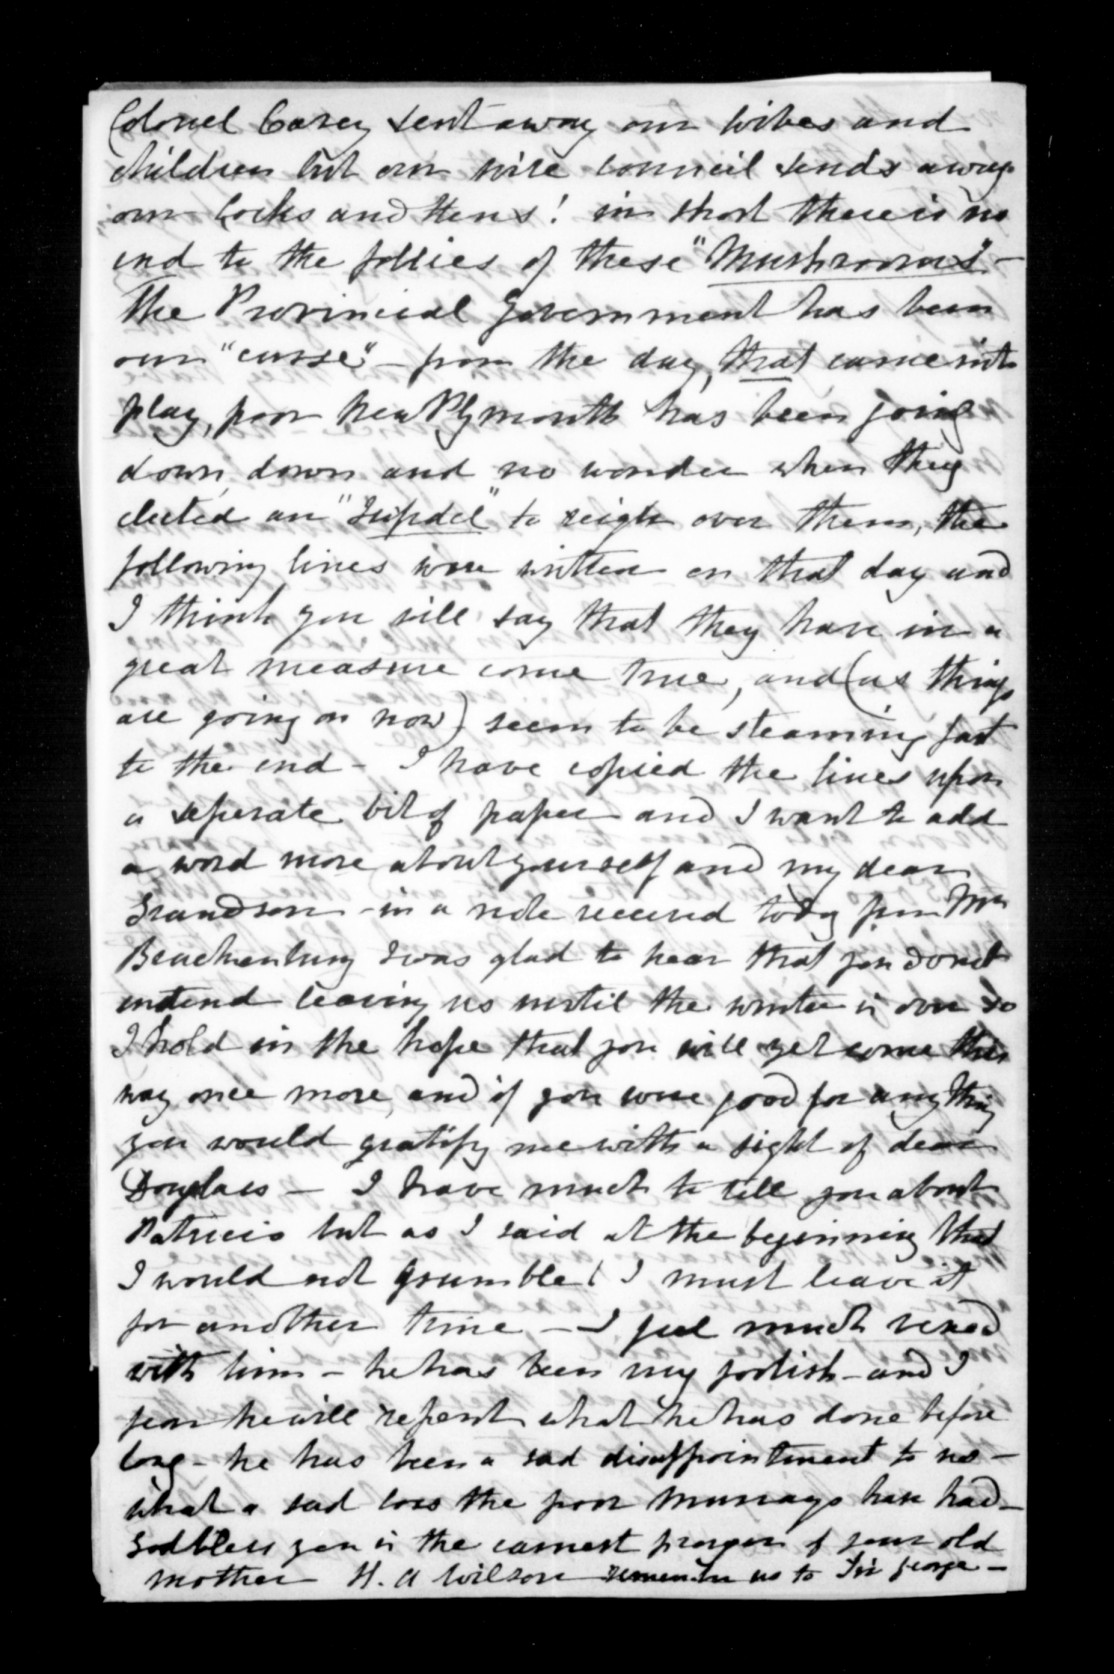 Colonel Carey sent away our wives and
children but our wise council sends away
our Cocks and Hens! in short there is no
end to the follies of these "Mushrooms" -
The Provincial Government has been
our "curse" - from the day, that came into
play, poor New Plymouth has been going
down, down and no wonder when they
elected an "Infidel" to reign over them, the
following lines were written on that day and
I think you will say that they have in a
great measure come true, and (as things
are going on now) seem to be steaming fast
to the end - I have copied the lines upon
a seperate bit of paper and I want to add
a word more about yourself and my dear
Grandson - in a note received today from Mrs
I was glad to hear that you do not
intend leaving us until the winter is over so
I hold in the hope that you will yet come this
way once more, and if you were good for any thing
you would gratify me with a sight of dear
Douglas - I have much to tell you about
Patricio but as I said at the beginning that
I would not grumble! I must leave it
for another time, - I feel much vexed
with him - he has been very foolish - and I
fear he will repent what he has done before
long - he has been a sad disappointment to us -
what a sad loss the poor Murrays have had -
God bless you is the earnest prayer of your old
mother H. A Wilson remember us to Sir George -